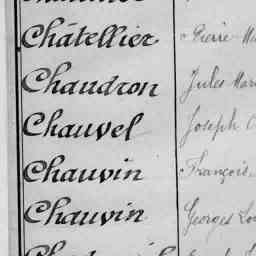 Châtellier Pierre
Chaudron Jules Mar
Chauvel Joseph
Chauvin François
Chauvin Georges Lou